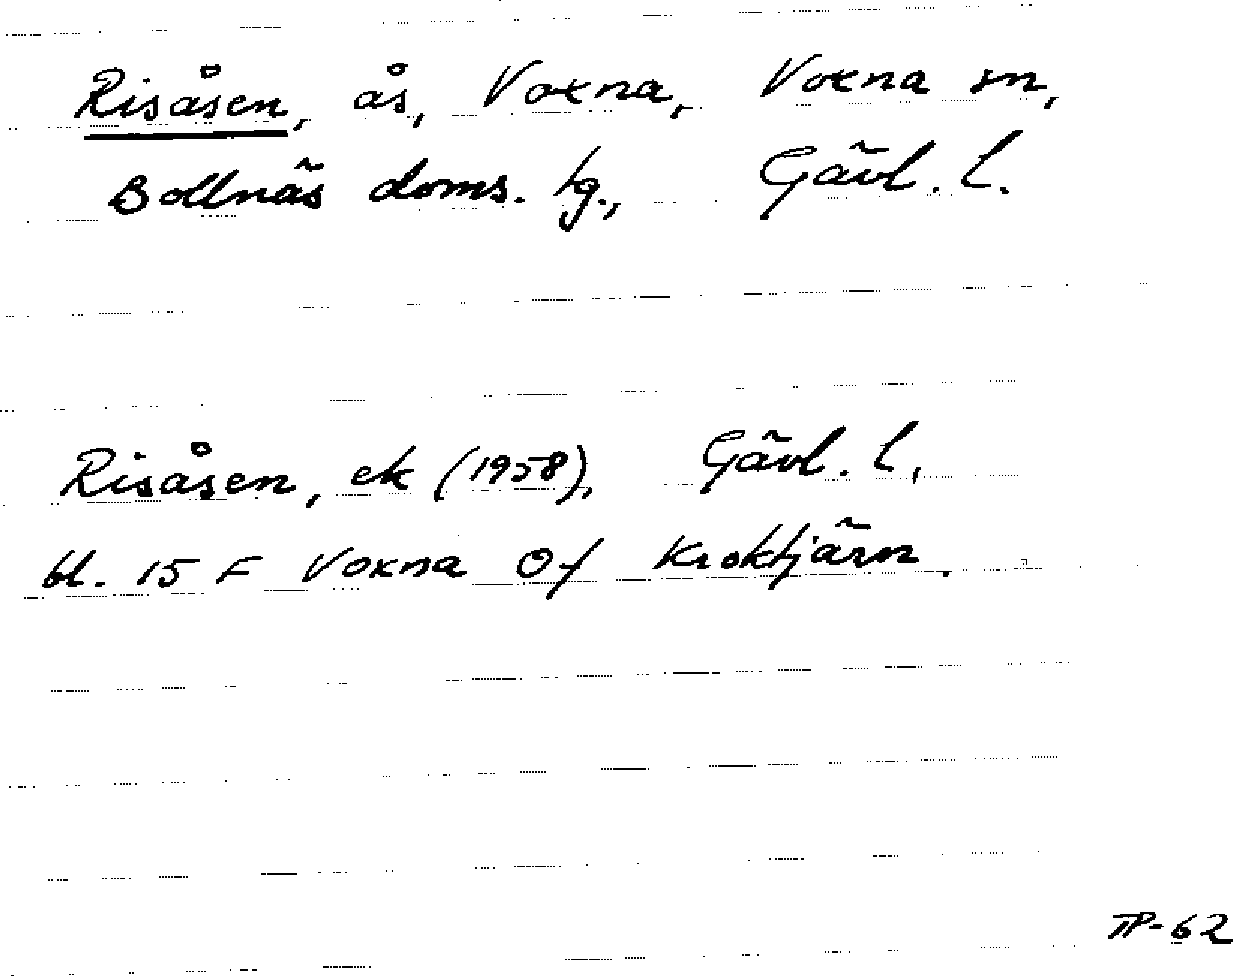 Risåsen, ås, Voxna, Voxna sn,
Bollnäs doms. hg., Gävl. l.
Risåsen, ek (1958), Gävl. l,
bl. 15 F Voxna Of Kroktjärn.
TP-62